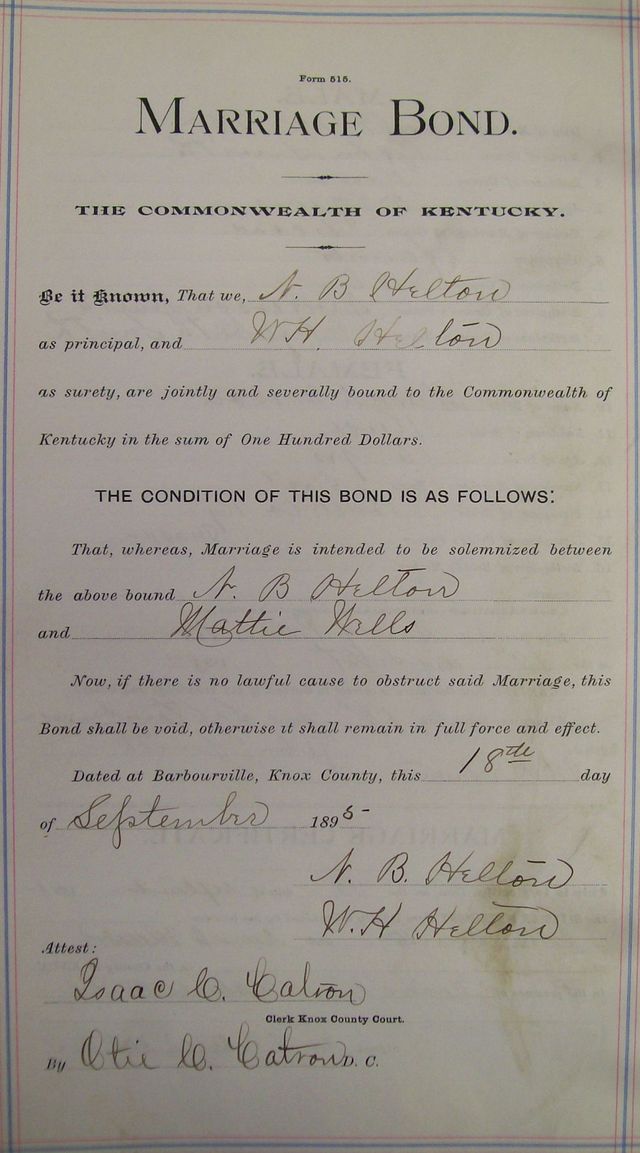 Form 515.
MARRIAGE BOND.
THE COMMONWEALTH OF KENTUCKY.
Be it Known, That we, N. B Helton
as principal, and W H. Helton
as surety, are jointly and severally bound to the Commonwealth of
Kentucky in the sum of One Hundred Dollars.
THE CONDITION OF THIS BOND IS AS FOLLOWS:
That, whereas, Marriage is intended to be solemnized between
the above bound N. B Helton
and Mattie Wells
Now, if there is no lawful cause to obstruct said Marriage, this
Bond shall be void, otherwise it shall remain in full force and effect.
Dated at Barbourville, Knox County, this 18th day
of September 1895
N. B. Helton
W. H Helton
Attest:
Isaac C. Catron
Clerk Knox County Court.
By Otie C. Catron D. C.